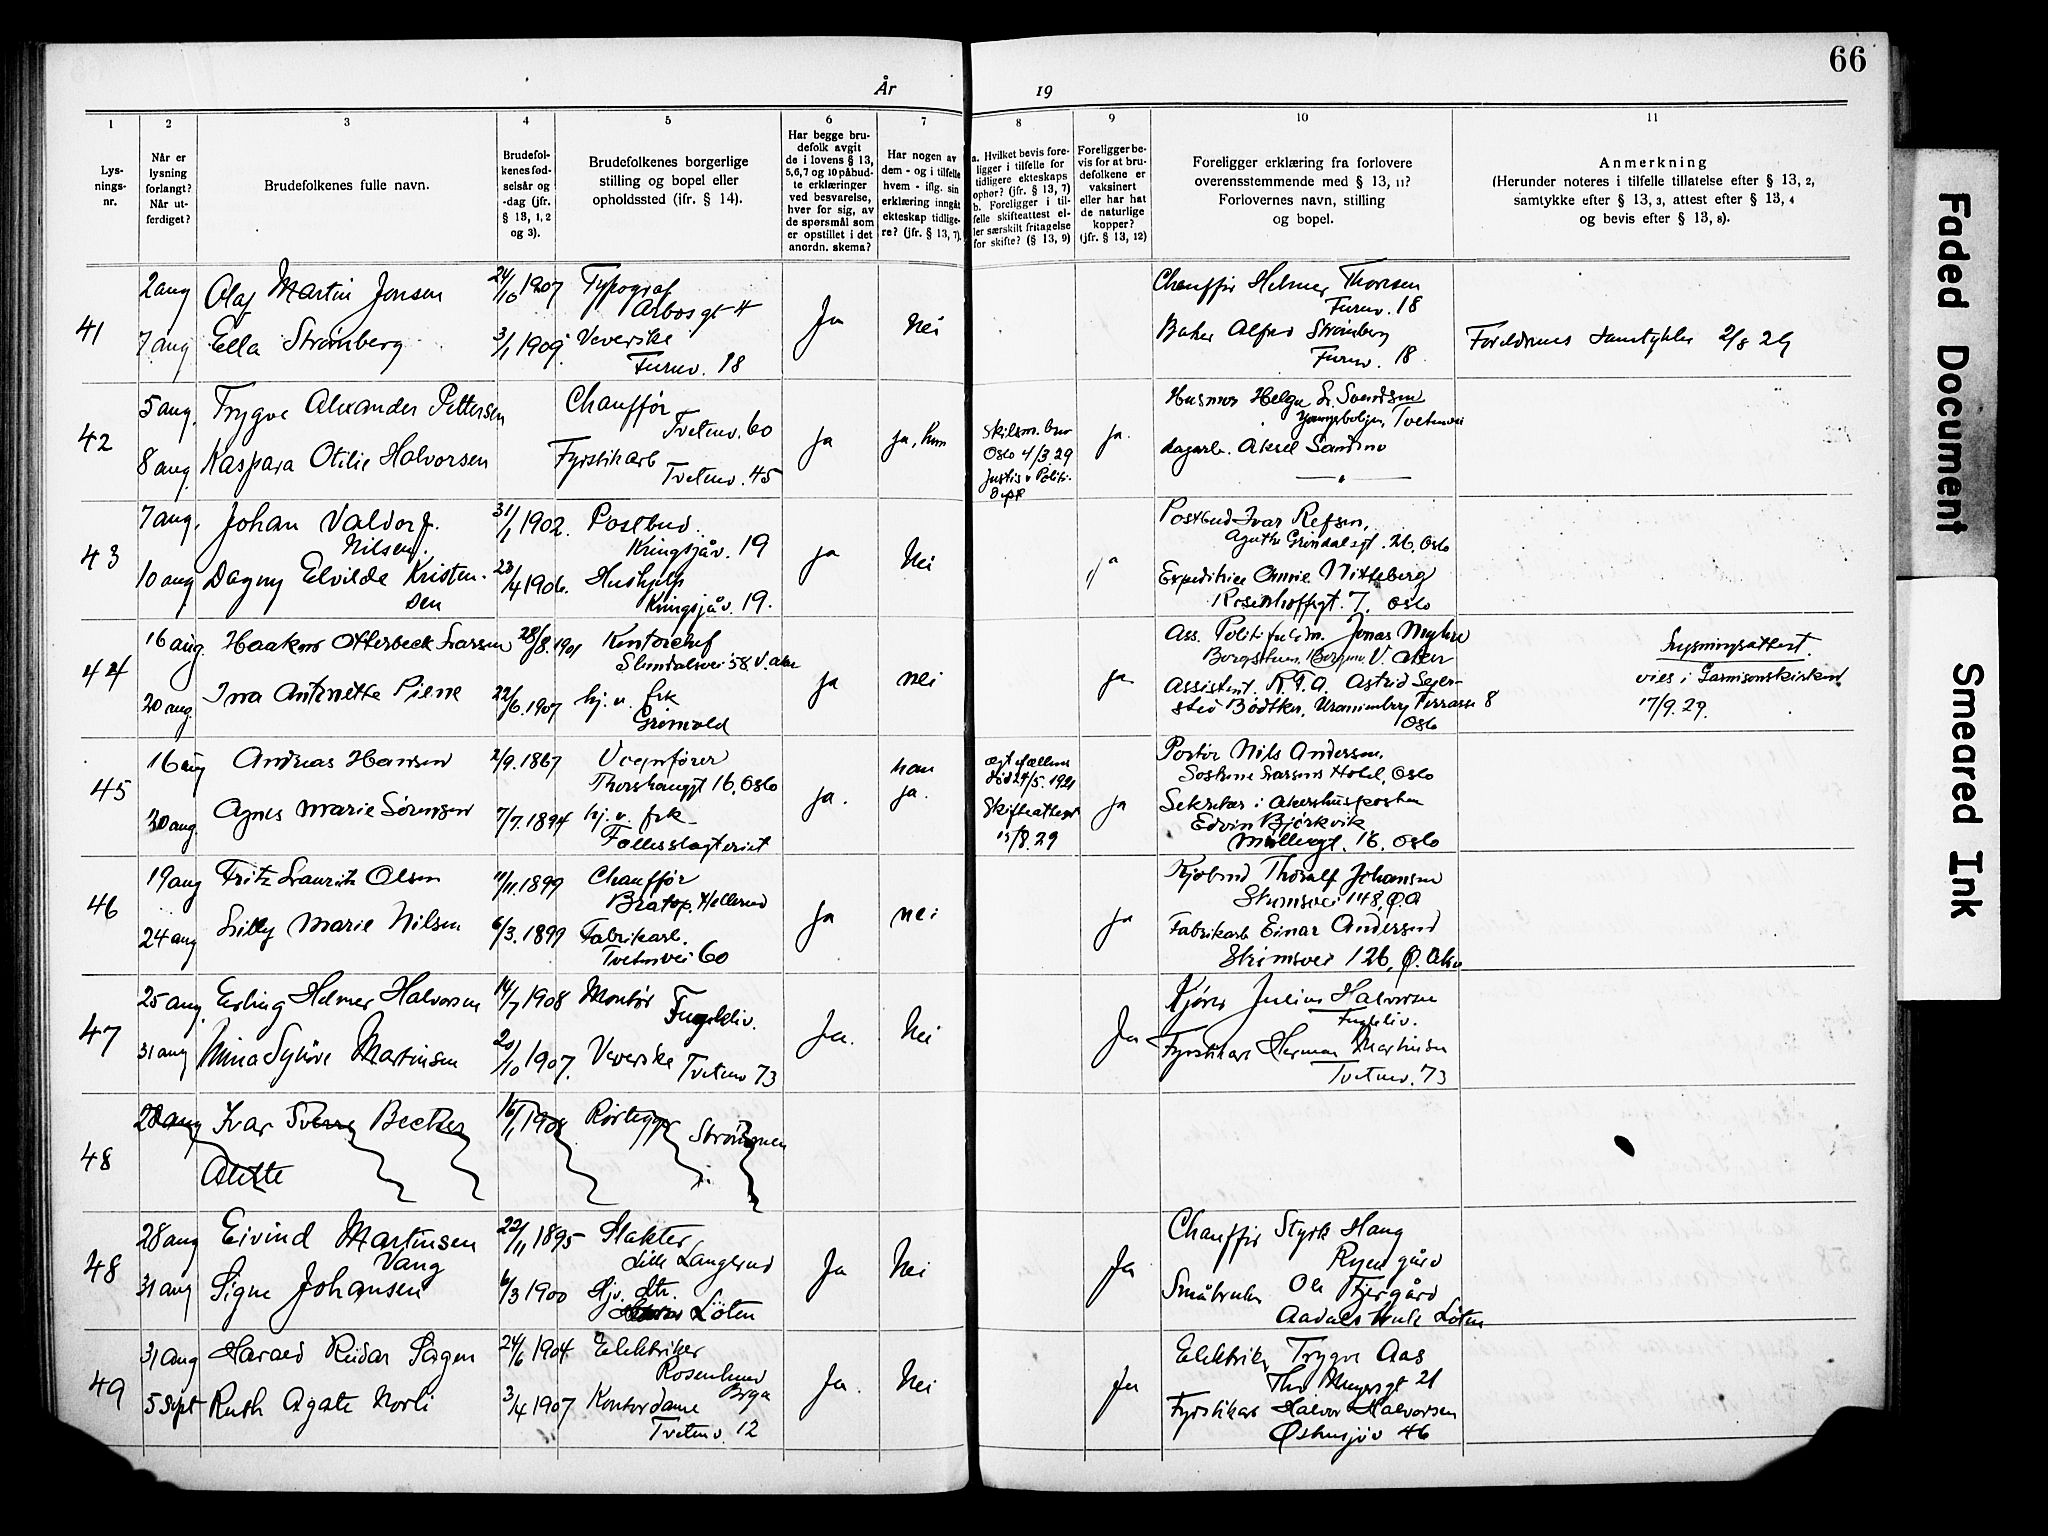 66
År 19
1
Lys-
nings-
nr.
2
Når er
lysning
forlangt?
Når ut-
ferdiget?
3
Brudefolkenes fulle navn.
4
Brudefol-
kenes fød-
selsår og
-dag (jfr.
§ 13, 1, 2
og 3).
5
Brudefolkenes borgerlige
stilling og bopel eller
opholdssted (jfr. § 14).
6
Har begge bru-
defolk avgit
de i lovens § 13,
5, 6, 7 og 10 påbud-
te erklæringer
ved besvarelse,
hver for sig, av
de spørsmål som
er opstillet i det
anordn. skema?
7
Har nogen av
dem - og i tilfelle
hvem - iflg. sin
erklæring inngåt
ekteskap tidlige-
re? (jfr. § 13, 7).
8
a. Hvilket bevis fore-
ligger i tilfelle for
tidligere ekteskaps
ophør? (jfr. § 13, 7)
b. Foreligger i til-
felle skifteattest el-
ler særskilt fritagelse
for skifte? (§ 13, 9)
9
Foreligger be-
vis for at bru-
defolkene er
vaksinert
eller har hat
de naturlige
kopper?
(jfr. § 13, 12)
10
Foreligger erklæring fra forlovere
overensstemmende med § 13, 11?
Forlovernes navn, stilling
og bopel.
11
Anmerkning
(Herunder noteres i tilfelle tillatelse efter § 13, 2,
samtykke efter § 13, 3, attest efter § 13, 4
og bevis efter § 13, 8).
41
2 aug Olaf Martin Jensen 24/10 1907 Typograf
Arbosgt 4
Ja Nei
Chauffør Helmer Thoresen
Furuv. 18
7 aug Ella Strømberg 3/1 1909 Veverske
Furuv. 18
Baker Alfred Strømberg
Furuv. 18
Foreldrenes Samtykke 2/8 29
42
5 aug. Trygve Alexander Pettersen Chauffør
Tvetenv. 60
8 aug Kaspara Otilie Halvorsen Fyrstikarb
Tvetenv. 45
ja ja, hun
Skilsm. bev
Oslo 4/3 29
Justis & Politi-
Dept
ja.
Helga Svendsen
Tvetenvei
dagarb. Aksel Sandmo
— " —
43
7 aug. Johan Valdorf.
Nilsen.
31/1 1902. Postbud.
Kringsjåv. 19
10 aug Dagny Elvilde Kristen-
sen
23/4 1906. Hushjelp
Kringsjåv. 19.
ja Nei ja
Postbud Ivar Refsen,
Agathe Grindalsgt. 26, Oslo
Expeditrice Annie Nitteberg
Rosenhoffgt. 7, Oslo
44
16 aug. Haakon Otterbeck Larssen 28/8. 1901 Kontorchef
Slemdalsvei 58 V. Aker
20 aug. Ina Antonette Piene 22/6. 1907 hj. v. frk
Grimold
ja nei ja
Ass. Politifuldm. Jonas Myhre
V. Aker
Assistent. R.T.A. Astrid Sejer-
sted Bødtker, Uranienborg Terrasse 8
Oslo
Lysningsattest.
vies i Garnisonskirken
17/9. 29.
45
16 aug Andreas Hansen 2/9. 1867 Vognfører
Thorshauggt 16, Oslo
30 aug. Agnes Marie Sørensen 7/7. 1894 hj. v. frk
Fellesslagteriet
ja. han
ja.
egtefællens
død 29/5. 1921
Skifteattest
15/8. 29
ja
Portør Nils Andersen,
Soskine Larssens Hotel, Oslo
Sekretær i Akershusposten
Edvin Bjørkvik
Møllergt. 16, Oslo
46
19 aug Fritz Lauritz Olsen 11/11. 1899 Chauffør
Bratop. Hellerud
24 aug Lilly Marie Nilsen 6/3. 1899 Fabrikarb.
Tvetenvei 60
ja nei ja
Thoralf Johansen
Strømsvei 148, Ø.A
Fabrikarb Einar Andersen
Strømsvei 126, Ø. Aker
47
25 aug. Erling Helmer Halvorsen 14/7 1908 Montør
Fugleliv.
31 aug Mina Sylvøe Martinsen 20/10 1907. Veverske
Tvetenv 73
Ja. Nei Ja
Kjører Julius Halvorsen
Fugleliv.
Fyrstikarb Herman Martinsen
Tvetenv. 73
48
28 aug Ivar Sverre Becker 16/1 1908 Rørlegger
Strømmen
Alette
48
28 aug Eivind Martinsen
Vang
22/11 1895 Slakter
Lille Langerud
31 aug Signe Johansen 6/3 1900 Hjv. dtr.
Löten
Ja Nei Ja
Chauffør Styrk Haug
Ryen gård
Småbruker Ole Tjergård
Aadals bruk Löten
49
31 aug Harald Reidar Sagen 24/6 1904 Elektriker
Rosenlund
Bryn
5 Sept Ruth Agate Norli 3/4 1907 Kontordame
Tvetenv. 12
Ja. Nei Ja
Elektriker Trygve Aas
Thv Meyersgt 21
Fyrstikarb Halvor Halvorsen
Østensjøv 46
Faded Document
Smeared Ink